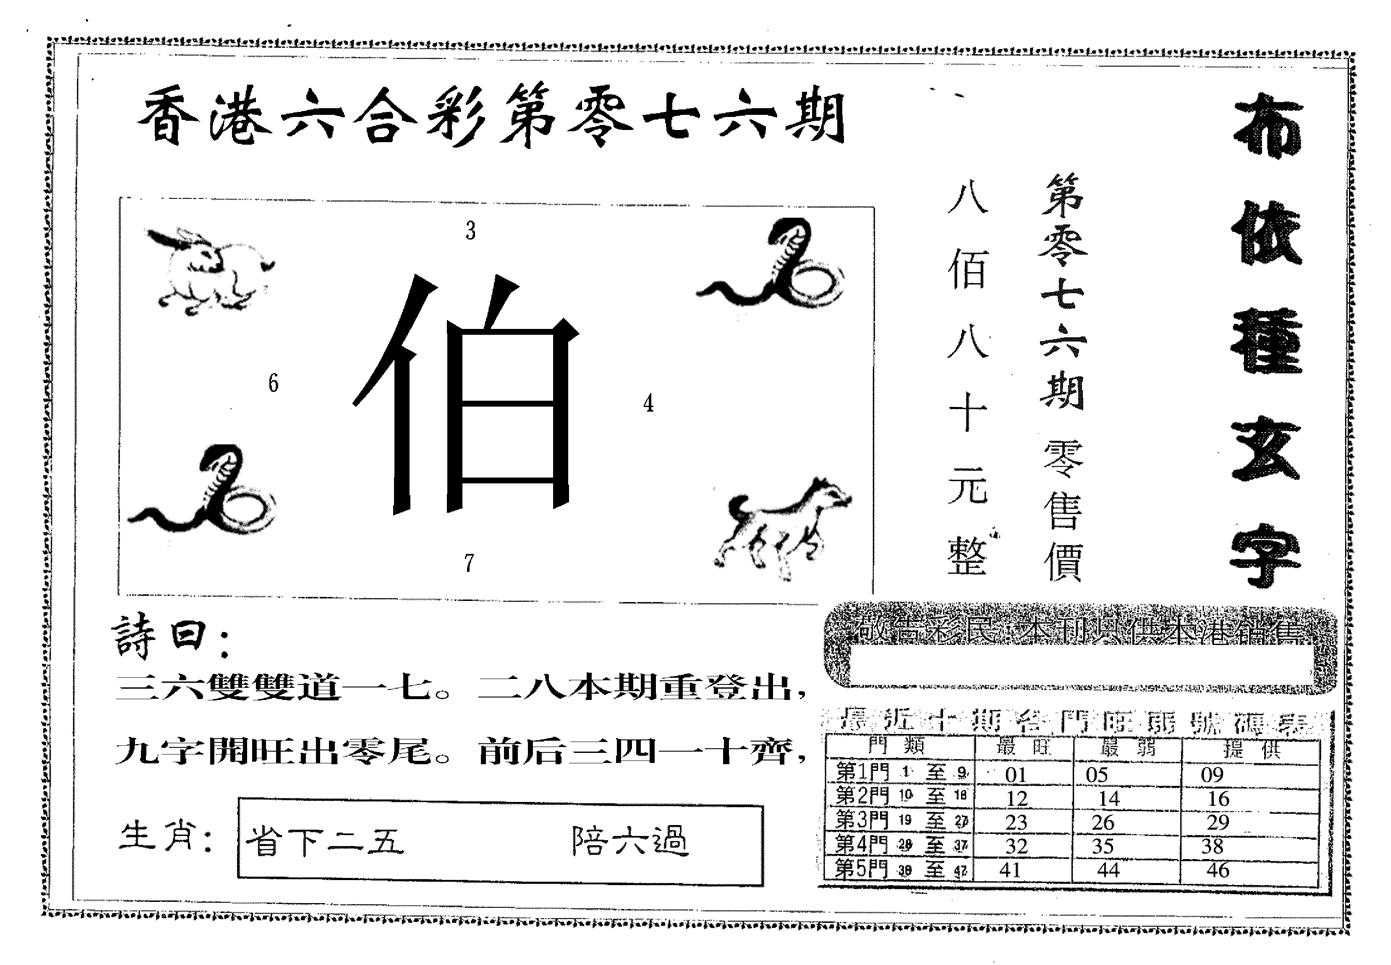 香港六合彩第零七六期
布依種玄字
第零七六期零售價
八佰八十元整
3
伯
6
4
7
詩曰：
三六雙雙道一七。二八本期重登出，
九字開旺出零尾。前后三四一十齊，
生肖：省下二五 陪六過
敬告彩民：本刊只供本港銷售
最近十期各門旺弱號碼表
門類 最旺 最弱 提供
第1門 1 至 9 01 05 09
第2門 10 至 18 12 14 16
第3門 19 至 27 23 26 29
第4門 28 至 37 32 35 38
第5門 38 至 47 41 44 46